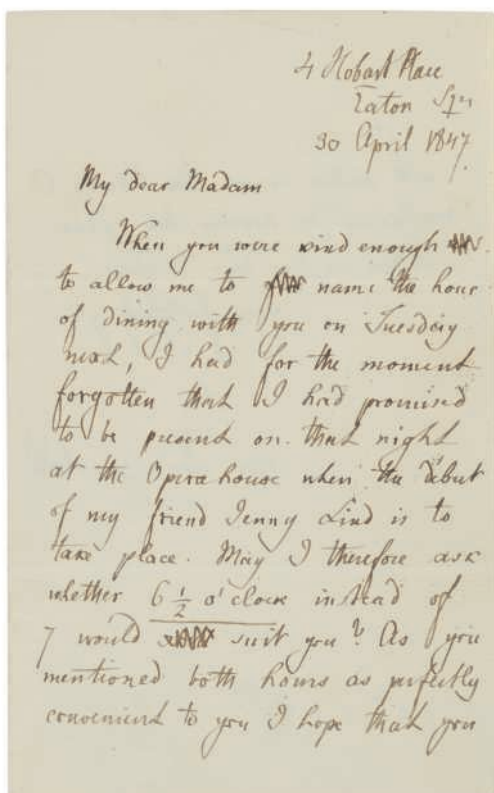 4 Hobart Place
Eaton Sqre
30 April 1847.
My dear Madam
When you were kind enough
to allow me to name the hour
of dining with you on Tuesday
next, I had for the moment
forgotten that I had promised
to be present on that night
at the Opera house when the début
of my friend Jenny Lind is to
take place. May I therefore ask
whether 6 ½ o'clock instead of
7 would suit you? As you
mentioned both hours as perfectly
convenient to you I hope that you